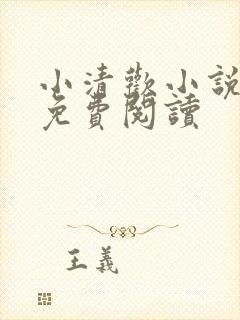 小清歡小說
免費閱讀
王義